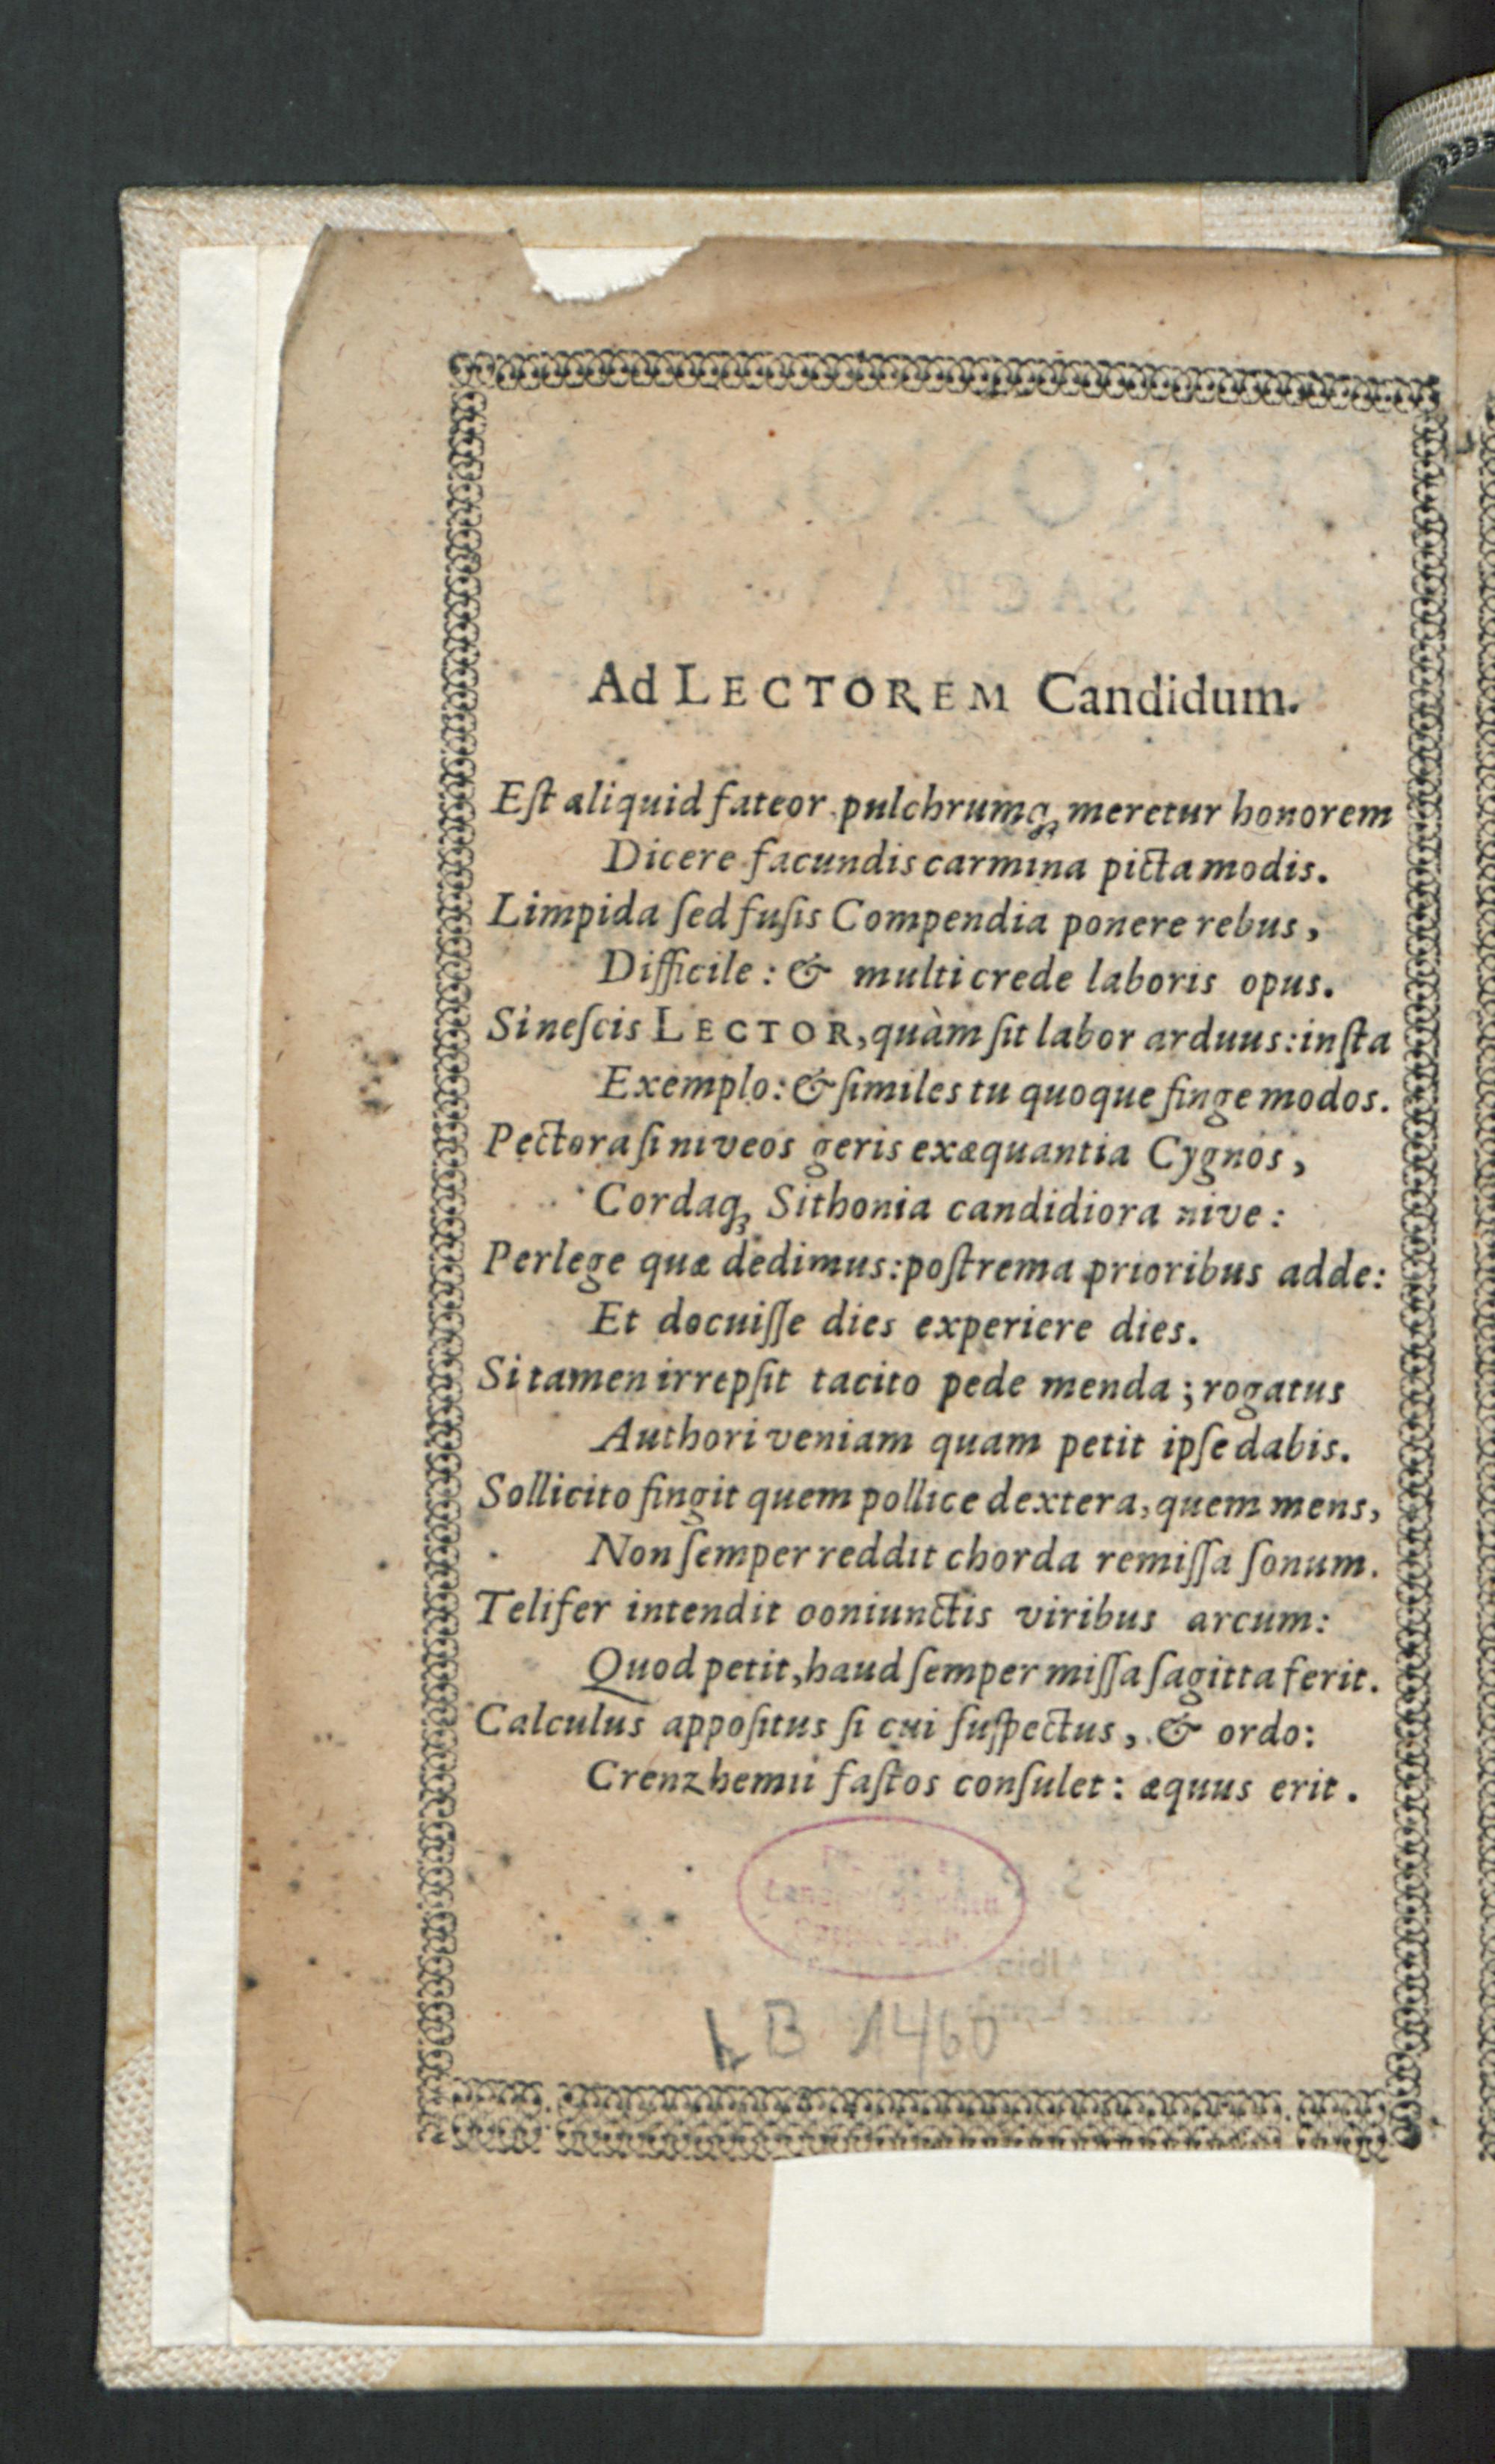 Ad LECTOREM Candidum.
Eſt aliquid fateor pulchrumq́ue meretur honorem
Dicere facundis carmina picta modis.
Limpida ſed fuſis Compendia ponere rebus,
Difficile: & multi crede laboris opus.
Si neſcis LECTOR, quàm ſit labor arduus: inſta
Exemplo: & ſimiles tu quoque finge modos.
Pectora ſi niveos geris exæquantia Cygnos,
Cordaq; Sithonia candidiora nive:
Perlege quæ dedimus: poſtrema prioribus adde:
Et docuiſſe dies experiere dies.
Si tamen irrepſit tacito pede menda; rogatus
Authori veniam quam petit ipſe dabis.
Sollicito fingit quem pollice dextera, quem mens,
Non ſemper reddit chorda remiſſa ſonum.
Telifer intendit ooniunctis viribus arcum:
Quod petit, haud ſemper miſſa ſagitta ferit.
Calculus appoſitus ſi cui ſuſpectus, & ordo:
Crenzhemii faſtos conſulet: æquus erit.
B 1460